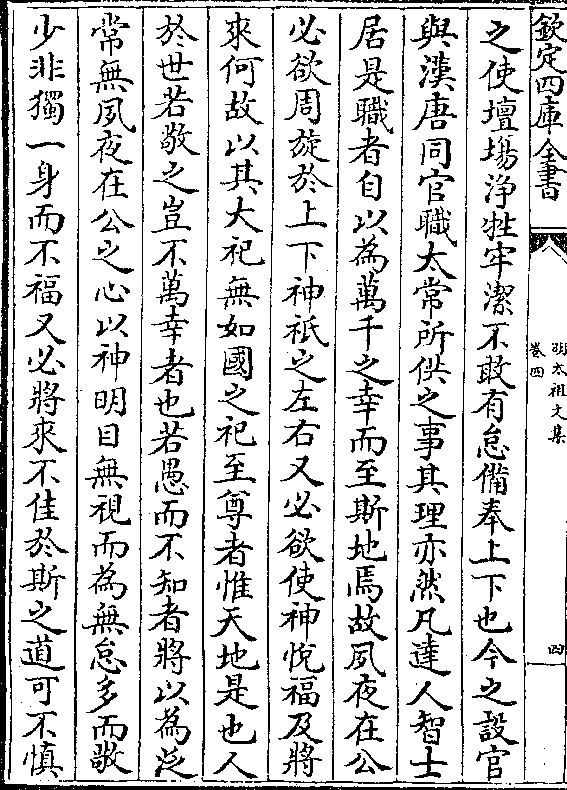 欽定四庫全書
明太祖文集
卷四
四
之使壇場浄牲牢潔不敢有怠備奉上下也今之設官
與漢唐同官職太常所供之事其理亦然凡達人智士
居是職者自以為萬千之幸而至斯地焉故夙夜在公
必欲周旋於上下神祇之左右又必欲使神悅福及將
來何故以其大祀無如國之祀至尊者惟天地是也人
於世若敬之豈不萬幸者也若愚而不知者將以為泛
常無夙夜在公之心以神明目無視而為無怠多而敬
少非獨一身而不福又必將來不佳於斯之道可不慎